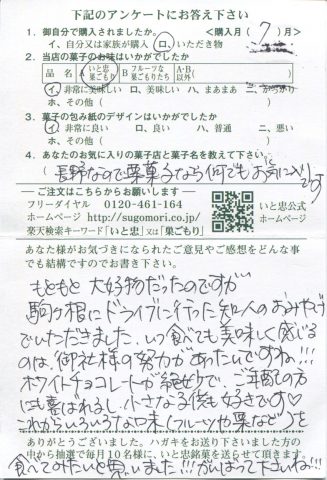 下記のアンケートにお答え下さい
1. 御自分で購入されましたか。 <購入月( 7 )月>
イ、自分又は家族が購入 ロ、いただき物
2. 当店の菓子のお味はいかがでしたか
品 名 A いと忠 巣ごもり B フルーツな 巣ごもりたち A・B 以外( )
イ、非常に美味しい ロ、美味しい ハ、まぁまぁ ニ、
ホ、その他( )
3. 菓子の包み紙のデザインはいかがでしたか
イ、非常に良い ロ、良い ハ、普通 ニ、悪い
ホ、その他( )
4. あなたのお気に入りの菓子店と菓子名を教えて下さい。
長野なので栗菓子なら何でもお気に入りです
─ ご注文はこちらからお願いします ─
フリーダイヤル 0120-461-164
ホームページ http://sugomori.co.jp/
楽天検索キーワード「いと忠」又は「巣ごもり」
いと忠公式
ホームページ
あなた様がお気づきになられたご意見やご感想をどんな事
でも結構ですのでお書き下さい。
もともと大好物だったのですが
駒ヶ根にドライブに行った知人のおみやげ
でいただきました。いつ食べても美味しく感じる
のは、御社様の努力があったいですね!!!
ホワイトチョコレートが絶妙で、ご年配の方
にも喜ばれるし、小さな子供も好きです♡
これからいろいろな味(フルーツや栗など)を
ありがとうございました。ハガキをお送り下さいました方の
中から抽選で毎月10名様に、いと忠銘菓を送らせて頂きます。
食べてみたいと思いました!!!がんばって下さいね!!!